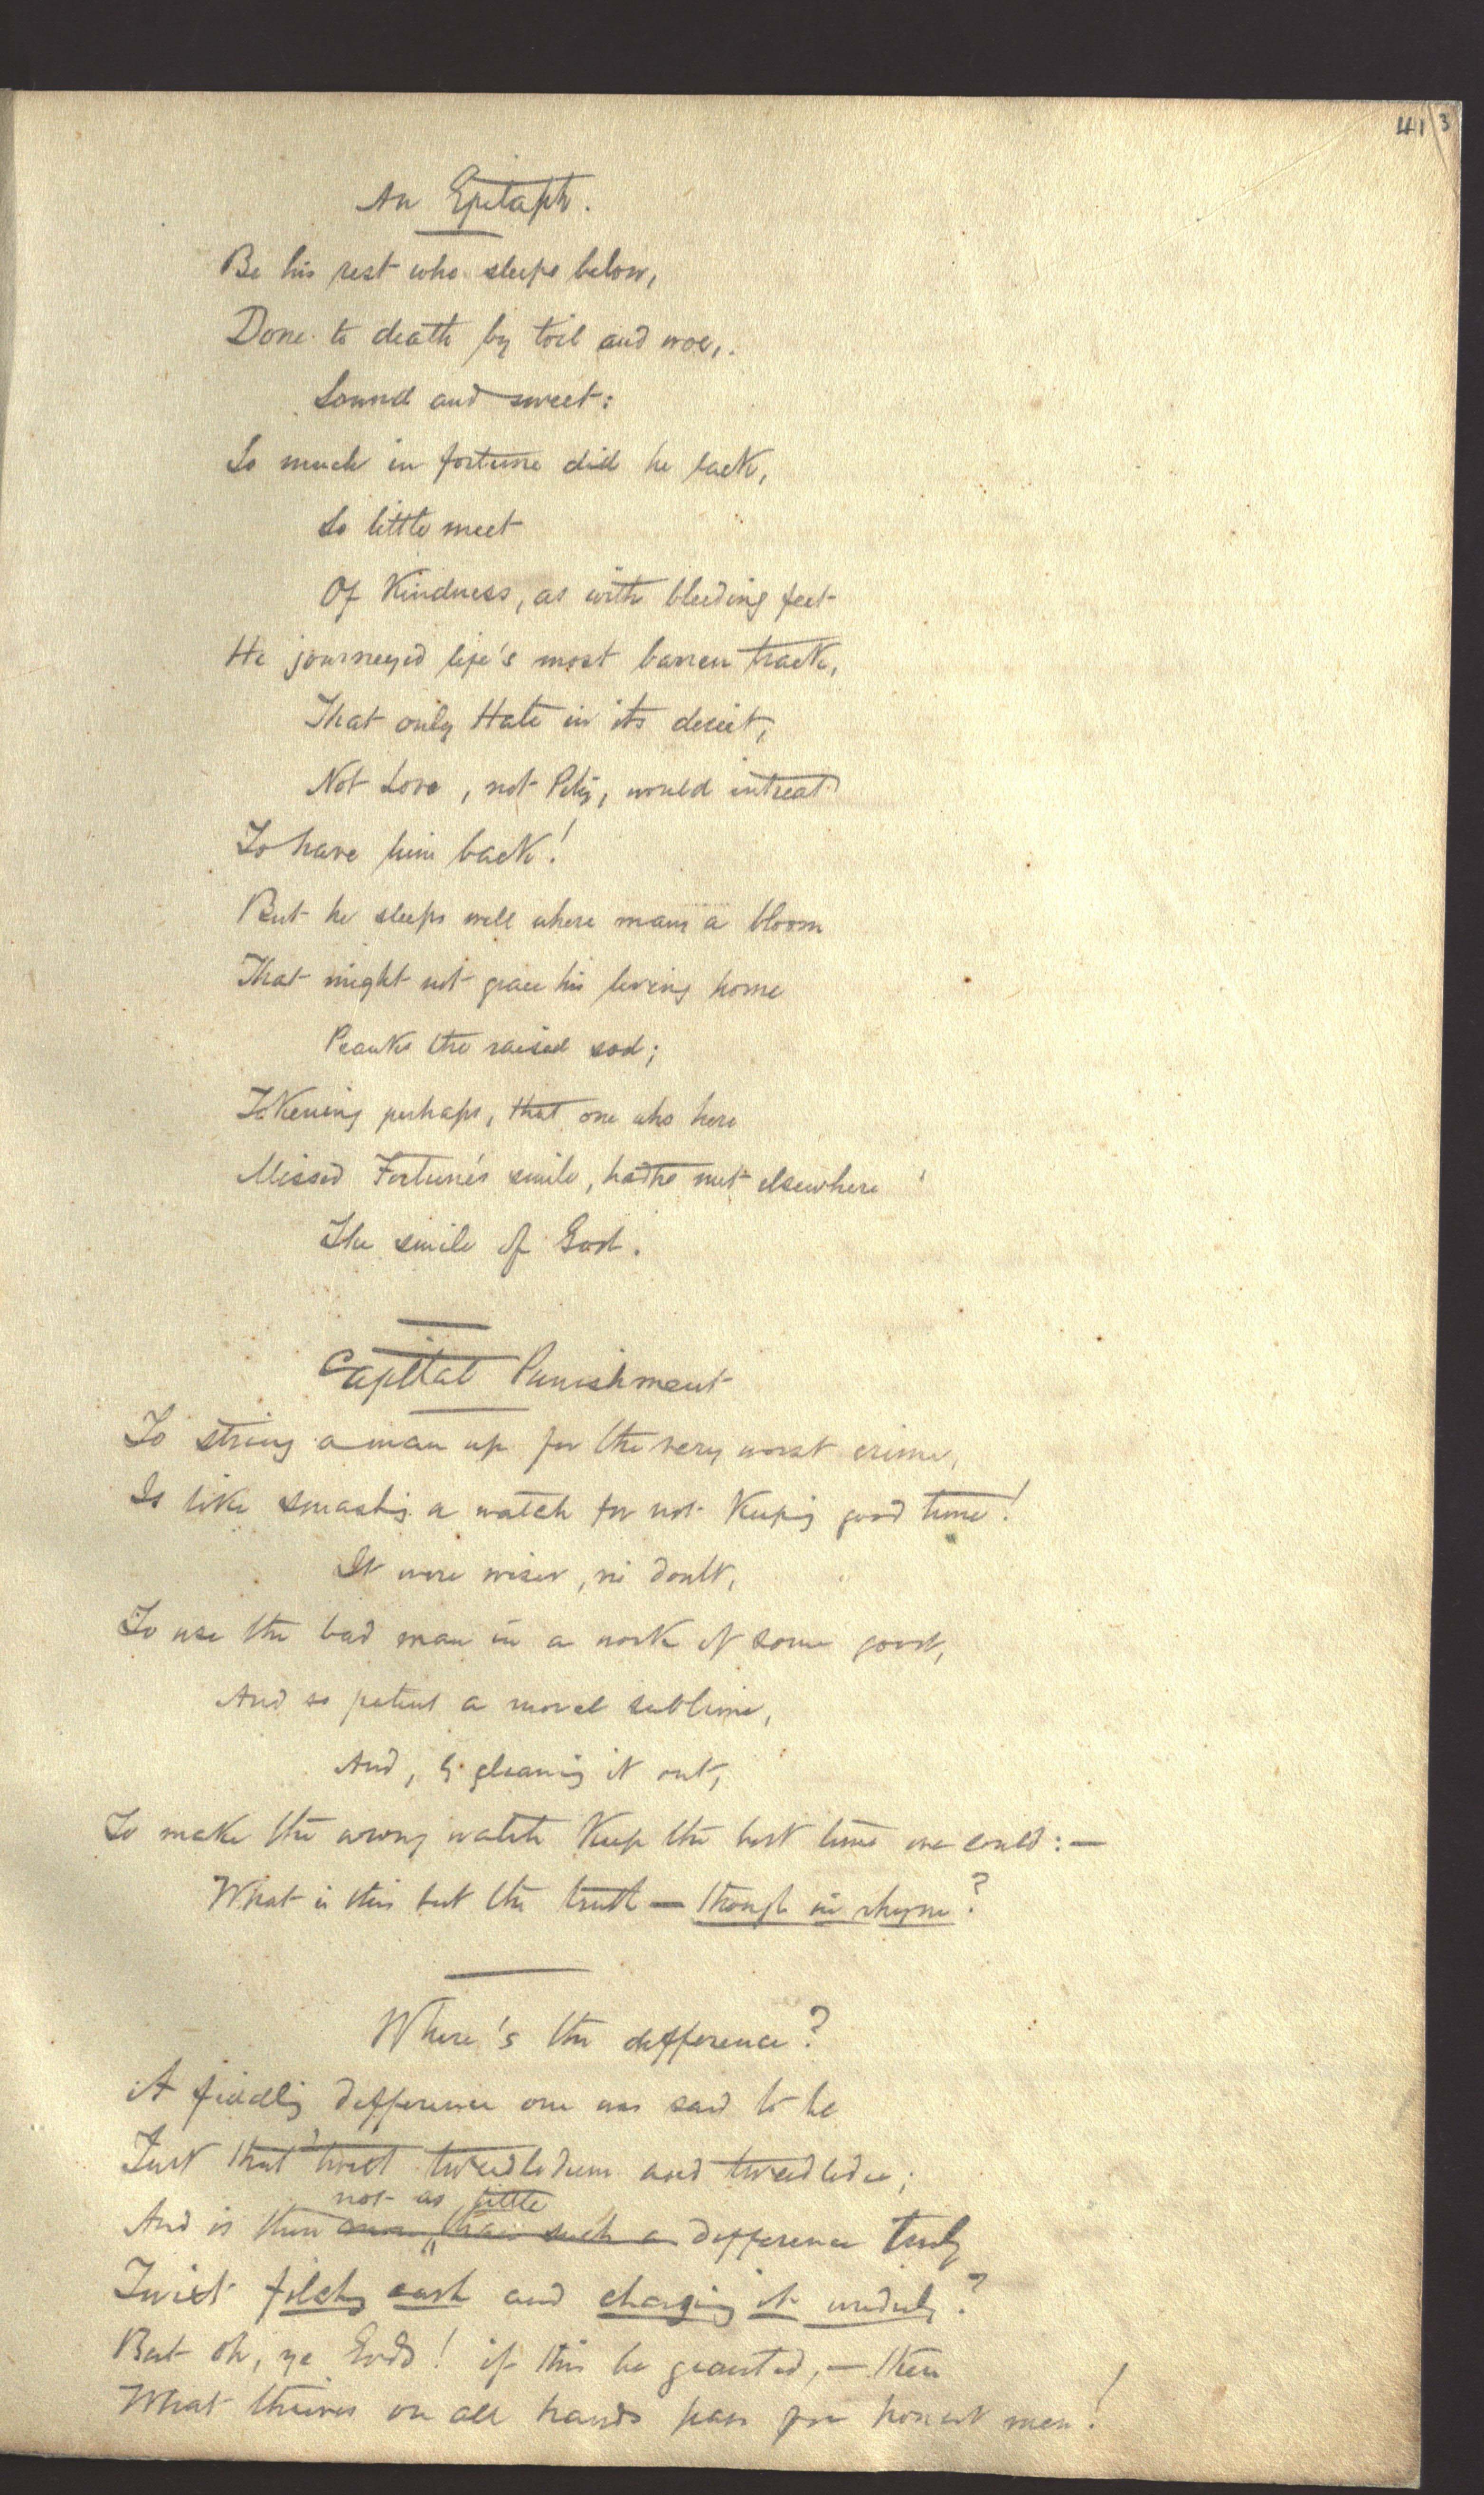 413
An Epitaph.
Be his rest who sleeps below,
Done to death by toil and woe,
Sound and sweet:
So much in fortune did he lack,
So little meet
Of Kindness, as with bleeding feet
He journeyed life's most barren track,
That only Hate in its deceit,
Not Love, not Pity, would intreat
To have him back!
But he sleeps well where many a bloom
That might not grace his living home
Pranks the raised sod;
Tokening perhaps, that one who here
Missed Fortune's smile, hath met elsewhere
The smile of God.
Capital Punishment
To string a man up for the very worst crime,
Is like smashing a watch for not Keeping good time!
It were wiser, no doubt,
To use the bad man in a work of some good,
And so patent a moral sublime,
And, by gleaning it out,
To make the wrong watch Keep the best time one could:—
What is this but the truth — though in rhyme?
Where's the difference?
A fiddling difference one was said to be
Just that 'twixt tweedledum and tweedledee;
not as little
And is there such a difference truly
Twixt filching cash and charging it unduly?
But oh, ye Gods! if this be granted, — then
What thieves on all hands pass for honest men!